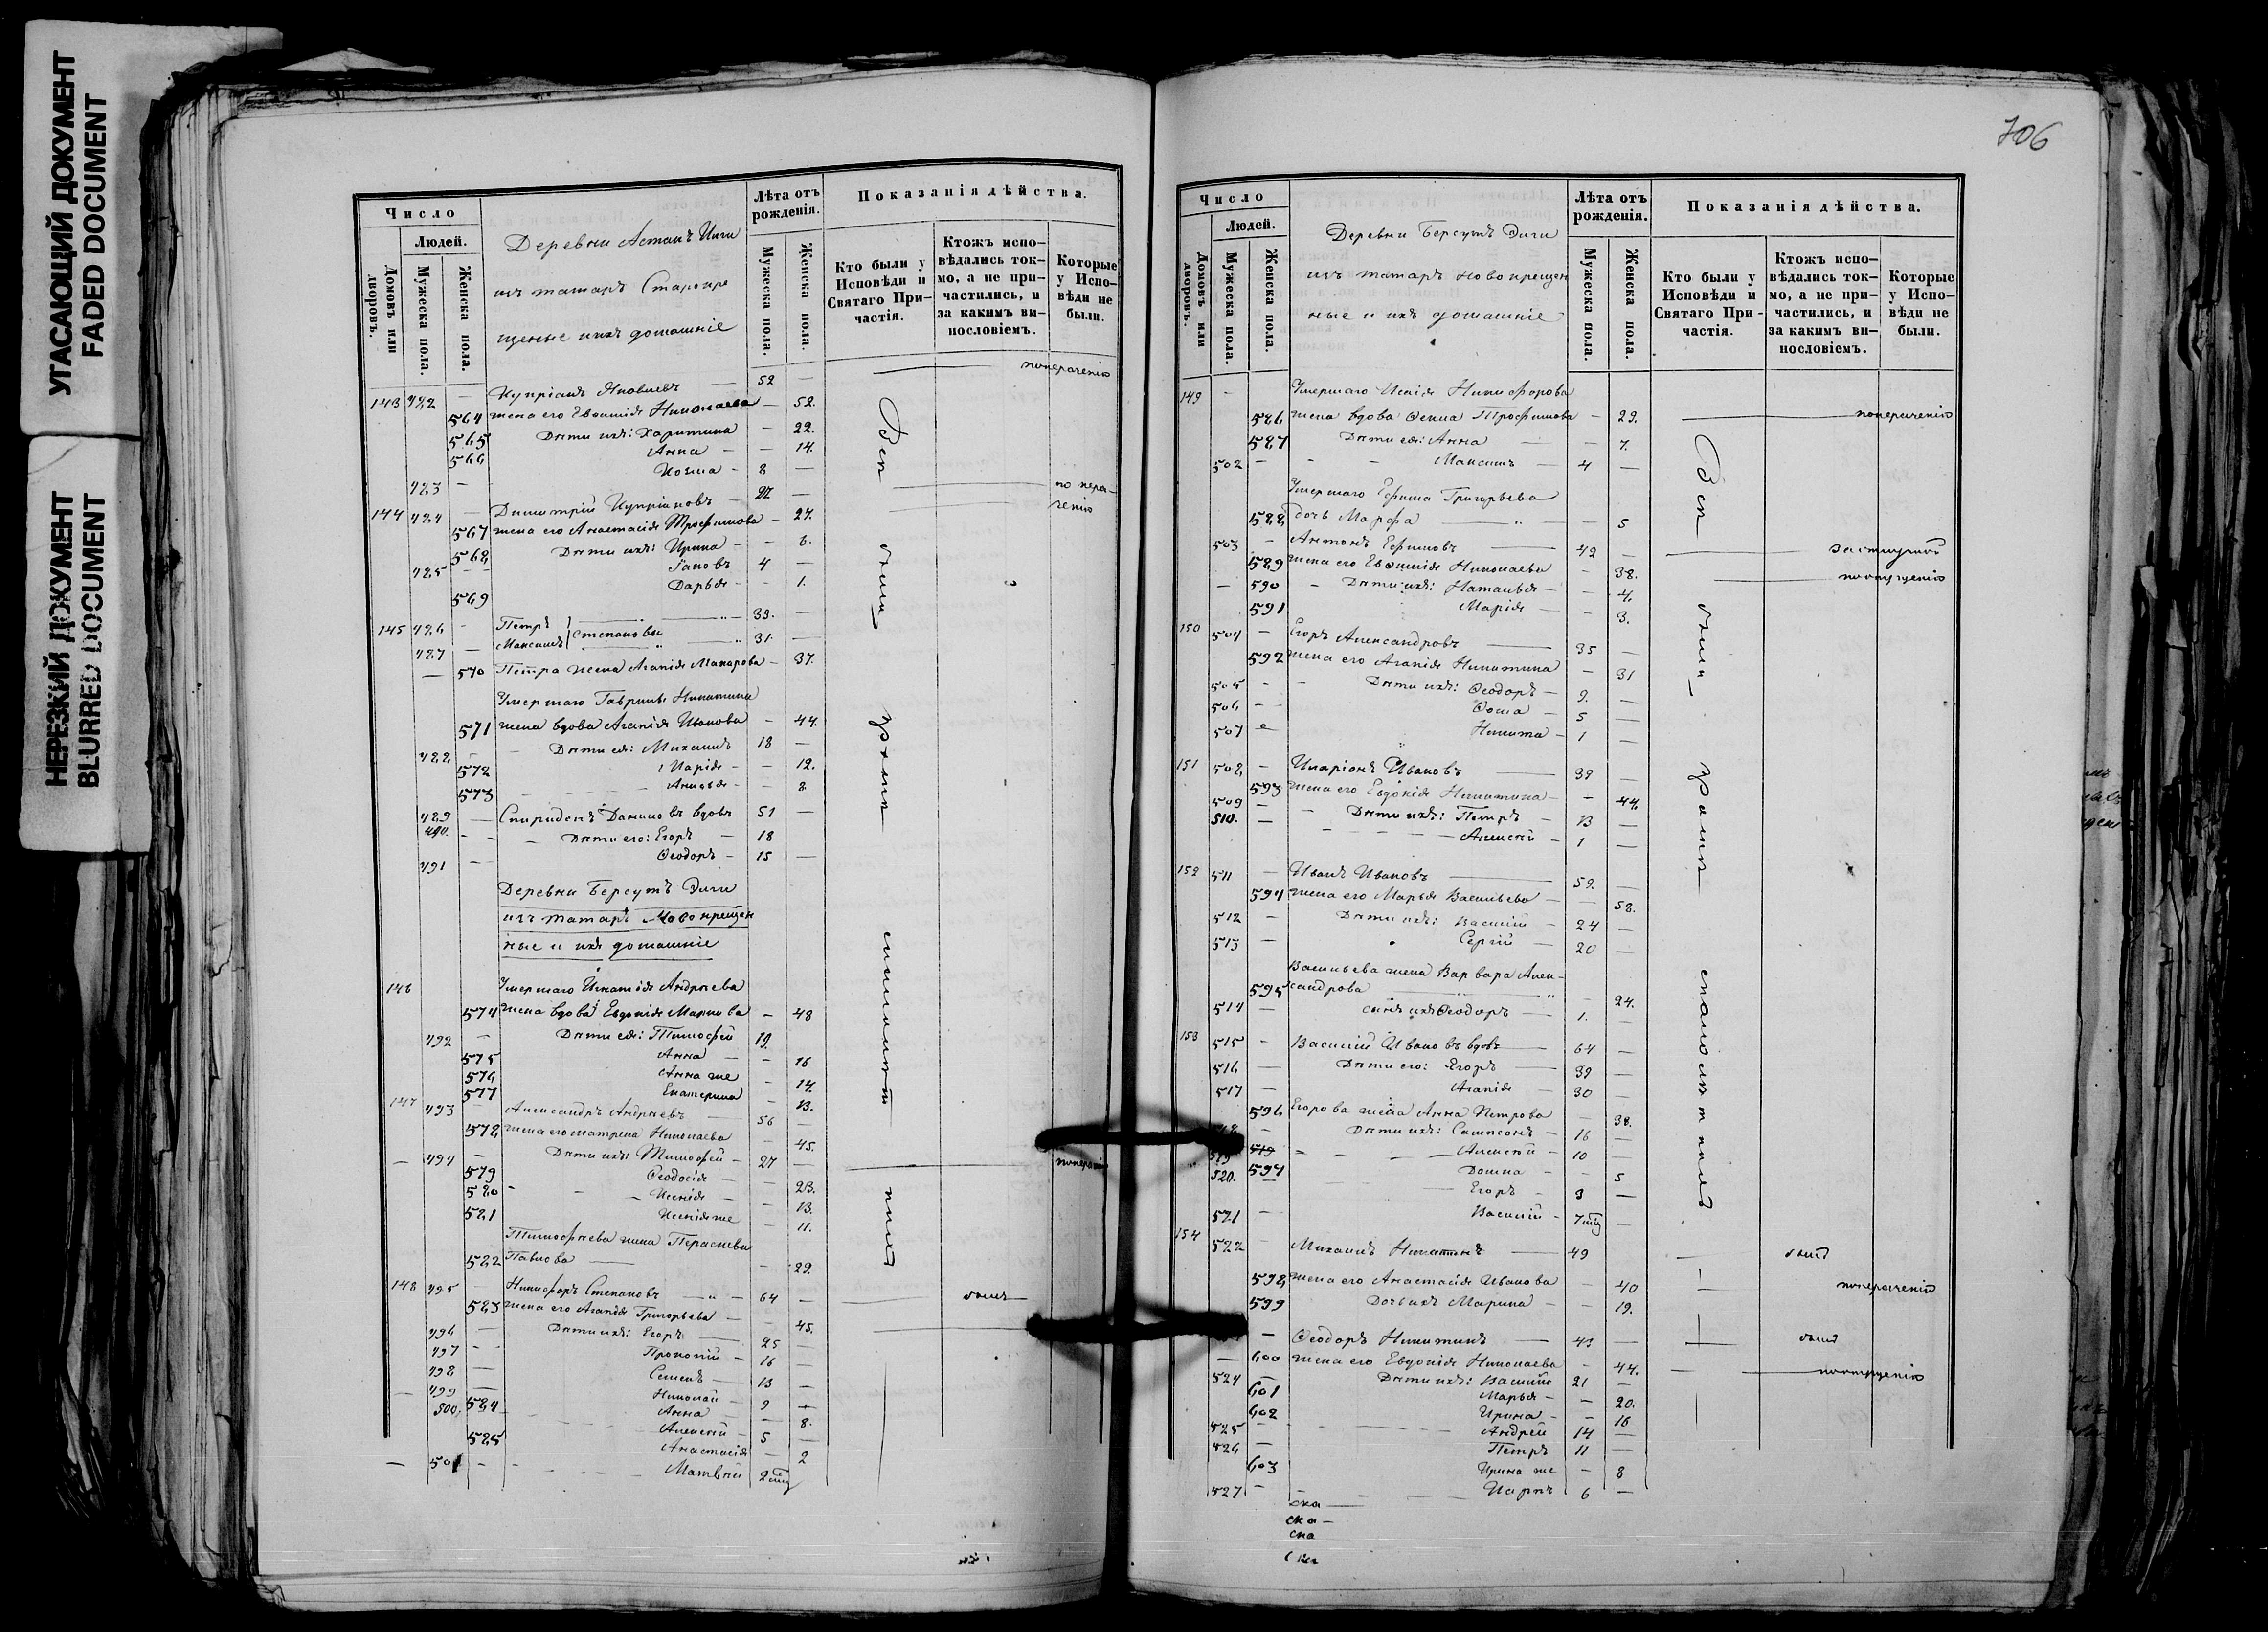 УГАСАЮЩИЙ ДОКУМЕНТ
FADED DOCUMENT
НЕРЕЗКИЙ ДОКУМЕНТ
BLURRED DOCUMENT
Число
Людей.
Домовъ или дворовъ.
Мужеска пола.
Женска пола.
Деревни Астанъ Илги
изъ татаръ Старокре
щеные и ихъ домашніе
Лѣта отъ рожденія.
Мужеска пола.
Женска пола.
Показанія дѣйства.
Кто были у Исповѣди и Святаго Причастія.
Ктожъ исповѣдались токмо, а не причастились, и за какимъ винословіемъ.
Которые у Исповѣди не были.
143 482 — Купріанъ Яковлевъ — 52 — понерачению
564 жена его Евѳимія Николаева — 52.
565 Дѣти ихъ: Харитина — 22.
566 Анна — — 14.
483 — Козма — 8 —
144 484 — Димитрій Купріановъ — 27 — по нерачению
567 жена его Анастасія Трофимова — 27.
568 Дѣти ихъ: Ирина — 6.
485 — — Іаковъ 4 —
569 Дарья — — 1.
145 486 — Петръ — 39. —
487 — Максимъ } Степановы — 31. —
— 570 Петра жена Агапія Макарова — 37.
Умершаго Гавріила Никитина
571 жена вдова Агапія Иванова — 44.
488 — Дѣти ея: Михаилъ 18 —
572 Марія — — 12.
573 Анисья — — 8
489 — Спиридонъ Даниловъ вдовъ 51 —
490. — — Дѣти его: Егоръ — 18
491 — Ѳеодоръ — 15 —
Деревни Берсутъ Элги
изъ татаръ Новокрещен
ные и ихъ домашніе
146 Умершаго Игнатія Андреева
574 жена вдова Евдокія Маркова — 48
492 — Дѣти ея: Тимофей 19.
575 Анна — — 16
576 Анна же — 14.
577 Екатерина — 13.
147 493 — Александръ Андреевъ — 56 —
578 жена его Матрена Николаева — 45.
— 494 — Дѣти ихъ: Тимофей — 27 — понерачению
579 Ѳеодосія — — 23.
580 — Ксенія — — 13.
581 Ксенія же — 11.
Тимофеева жена Параскева
582 Павлова — — 29.
148 495 — Никифоръ Степановъ — 64 — — былъ —
583 жена его Агапія Григорьева — 45.
496 — Дѣти ихъ: Егоръ — 25 —
497 — Прокопій — 16 —
498 — Семенъ — 13 —
— 499 — Николай — 9 —
500. 584 Анна — — 8.
Алексей — 5 —
585 Анастасія — 2
— 501 — Матвѣй 2 мц
Всѣ были кромѣ малолѣтнихъ
706
Число
Людей.
Домовъ или дворовъ.
Мужеска пола.
Женска пола.
Деревни Берсутъ Элги
изъ татаръ новокрещен
ные и ихъ домашніе
Лѣта отъ рожденія.
Мужеска пола.
Женска пола.
Показанія дѣйства.
Кто были у Исповѣди и Святаго Причастія.
Ктожъ исповѣдались токмо, а не причастились, и за какимъ винословіемъ.
Которые у Исповѣди не были.
149 — Умершаго Никифорова
586 жена вдова Трофимова — 29. — понерачению
587 Дѣти ея: Анна — — 7.
502 — — Максимъ — 4 —
Умершаго Ефима Григорьева
588 дочь Марфа — — 5
503 — Антонъ Ефимовъ — 42 —
589 жена его Евѳимія Николаева — 38. — поопущению
— 590 — Дѣти ихъ: Наталья — — 4.
591 Марія — — 3.
150 504 — Егоръ Александровъ — 35 —
592 жена его Агапія Никитина — 31
505 — — Дѣти ихъ: Ѳеодоръ — 9. —
506 — Ѳома — 5 —
507 — Никита — 1 —
151 508 — Иларіонъ Ивановъ — 39 —
593 жена его Евдокія Никитина — — 44.
509 — — Дѣти ихъ: Петръ — 13 —
510. — Алексей — 1 —
152 511 — Иванъ Ивановъ — 59. —
594 жена его Марья Васильева — — 58.
512 — Дѣти ихъ: Василій — 24 —
513 — Сергій — 20 —
Васильева жена Варвара Алек-
595 сандрова — — 24.
514 — сынъ ихъ Ѳеодоръ — 1. —
153 515 — Василій Ивановъ вдовъ — 64 —
516 — Дѣти его: Егоръ — 39 —
517 — Агапія — 30 —
596 Егорова жена Анна Петрова — 38.
— Дѣти ихъ: Сампсонъ — 16 —
519 — Алексей — 10 —
520. 597 Домна — — 5
Егоръ — 3 —
521 — Василій — 7 мц —
154 522 — Михаилъ Никитинъ — 49 — былъ
598 жена его Анастасія Иванова — 40 — понерачению
599 Дочь ихъ Марина — — 19.
— Ѳеодоръ Никитинъ — 43 — былъ
— 600 жена его Евдокія Николаева — 44. — поопущению
524 — Дѣти ихъ: Василій 21 —
601 Марья — — 20.
602 Ирина — — 16
525 — Андрей 14 —
526 — Петръ 11 —
603 Ирина же — 8
527 — Карпъ 6 —
Всѣ были кромѣ
ска —
ска —
ска